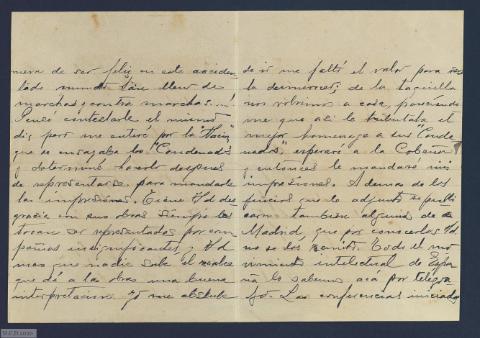 nera de ser feliz en este acciden
tado mundo tan lleno de
marchas y contra marchas.
Pensé contestarle el mismo
dia, pero me enteré por la
que se ensayaba los "Condenados
y determiné hacerlo despues
de representarse para mandarle
las impresiones. Tiene Vd des
gracia con sus obras siempre les
tocan ser representados por com
pañias insignificantes, y Vd
mas que nadie sabe el realce
que dá a las obras una buena
interpretacion. Yo me abstube
de ir me faltó el valor para
la desmerecer; de la taquilla
nos volvimos a casa, pareciendo
me que asi le tributaba el
mejor homenage a sus "Conde
nados" esperaré a la Cobeña
y entonces le mandaré mis
impresiones. A demas de los
juicios que le adjunto se publi
caron tambien algunos de
Madrid, que por conocerlos Vd
no se los remito. Todo el mo
vimiento intelectual de Espa
ña lo sabemos acá por telegra
fo. Las conferencias iniciadas